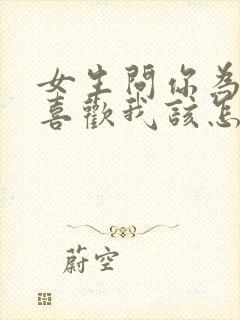 女生問你為
喜歡我該怎
蔚空